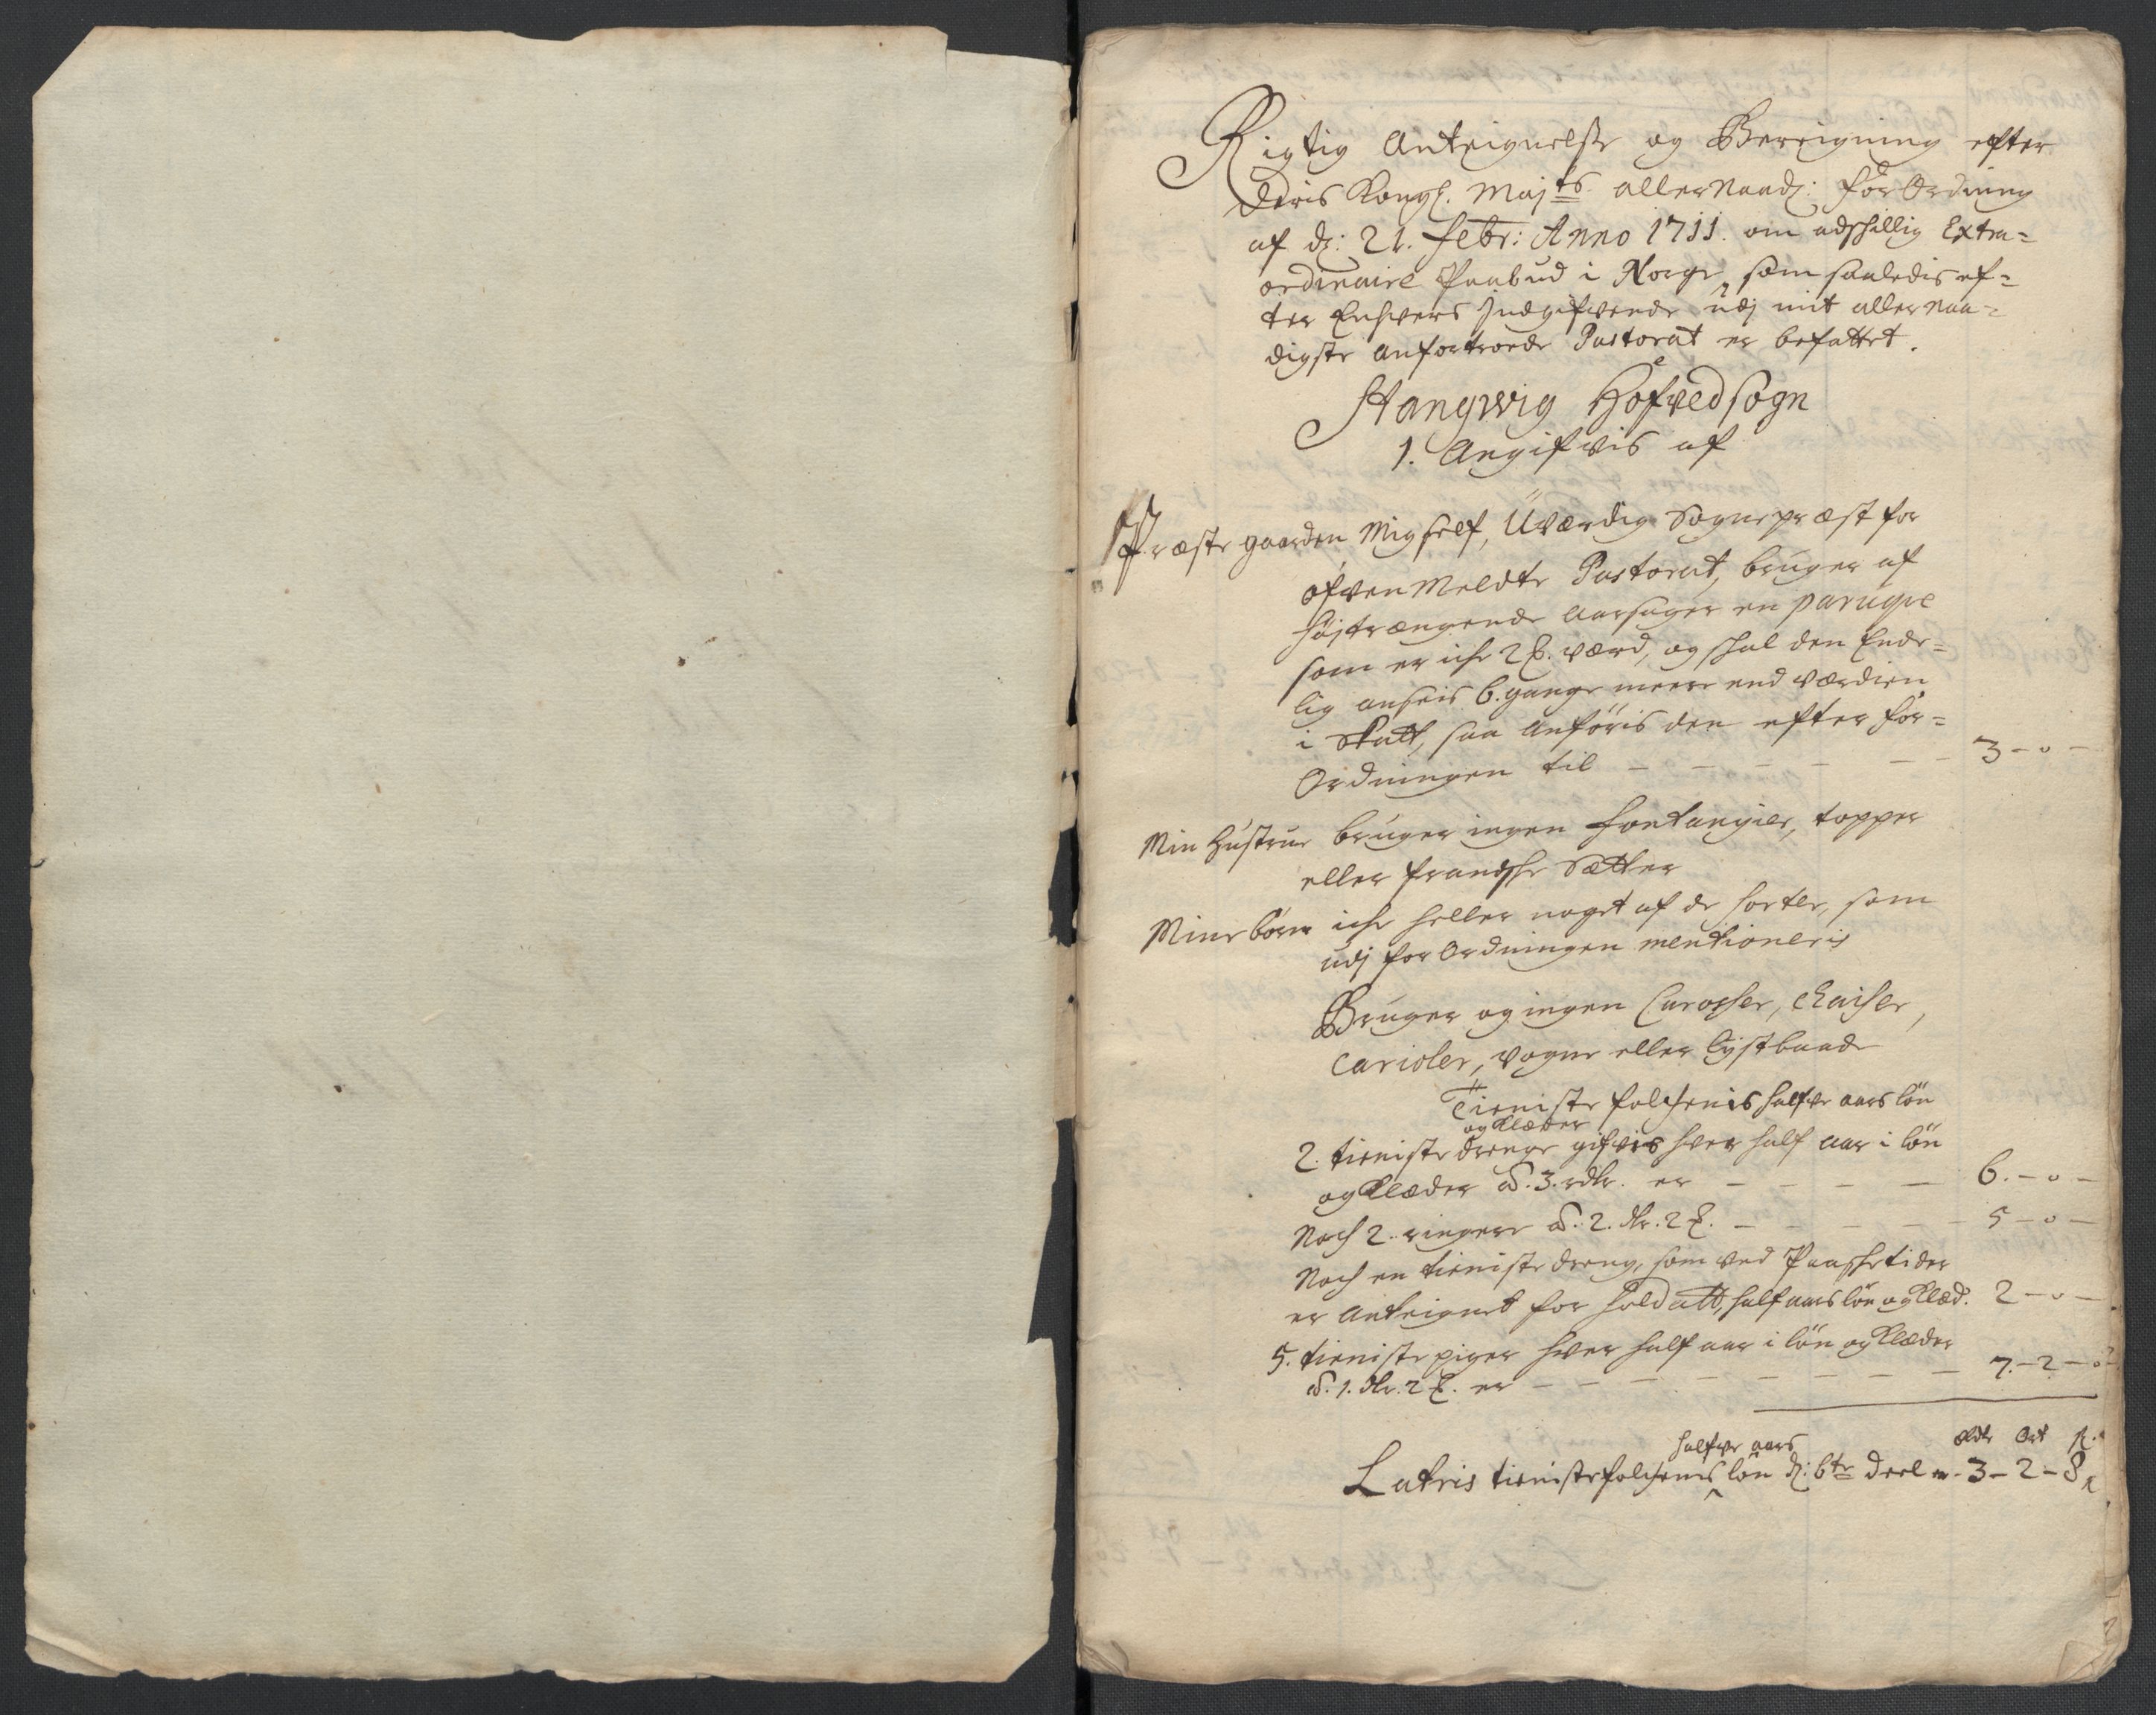 Rigtig Anteignelse og Bereigning efter
Deris Kongl. Majts. allernaad: forordning
af d: 21. Febr: Anno 1711. om adskillig Extra=
ordinaire Paabud i Norge, som saaledis ef=
ter Enhvers Indgifvende udj mit allernaa=
digste anfortroede Pastorat er befattet.
Stangwig Hofvedsogn
1. Angifvis af
Præste gaarden Mig self, Uværdig Sogneprest for
ofvenmeldte Pastorat, bruger af
højtrængende Aarsager en paruqve
som er iche 2 værd, og skal den Ende=
lig anseis 6. gange meere end værdien
i Skatt, saa anføris den efter for=
Ordningen til - - - - - - 3 - o -
Min Hustrue bruger ingen fontangier, topper
eller frandske Sætter
Mine börn iche heller noget af de sorter, som
udj forordningen mentioneris
Bruger og ingen Carosser, Chaiser,
Carioler, vogne eller lystbaade
Tieniste folchenis halfve aars lön
og Klæder
2. tieniste drenge gifvis hver half aar i lön
og Klæder a. 3. rdr. er - - - - 6. - o -
Noch 2. ringere a. 2. dr. 2 . - - - - - 5 - o -
Noch en tieniste dreng, som ved Paasketider
er anteignet for soldatt, half aars lön og Klæd. 2 - o -
5. tieniste piger hver half aar i lön og Klæder
a. 1. dr. 2 . er - - - - - - - - 7. - 2 - o
halfve aars Rdr Ort s.
Latris tienistefolchenis lön d: 6te deel er. 3 - 2 - 8